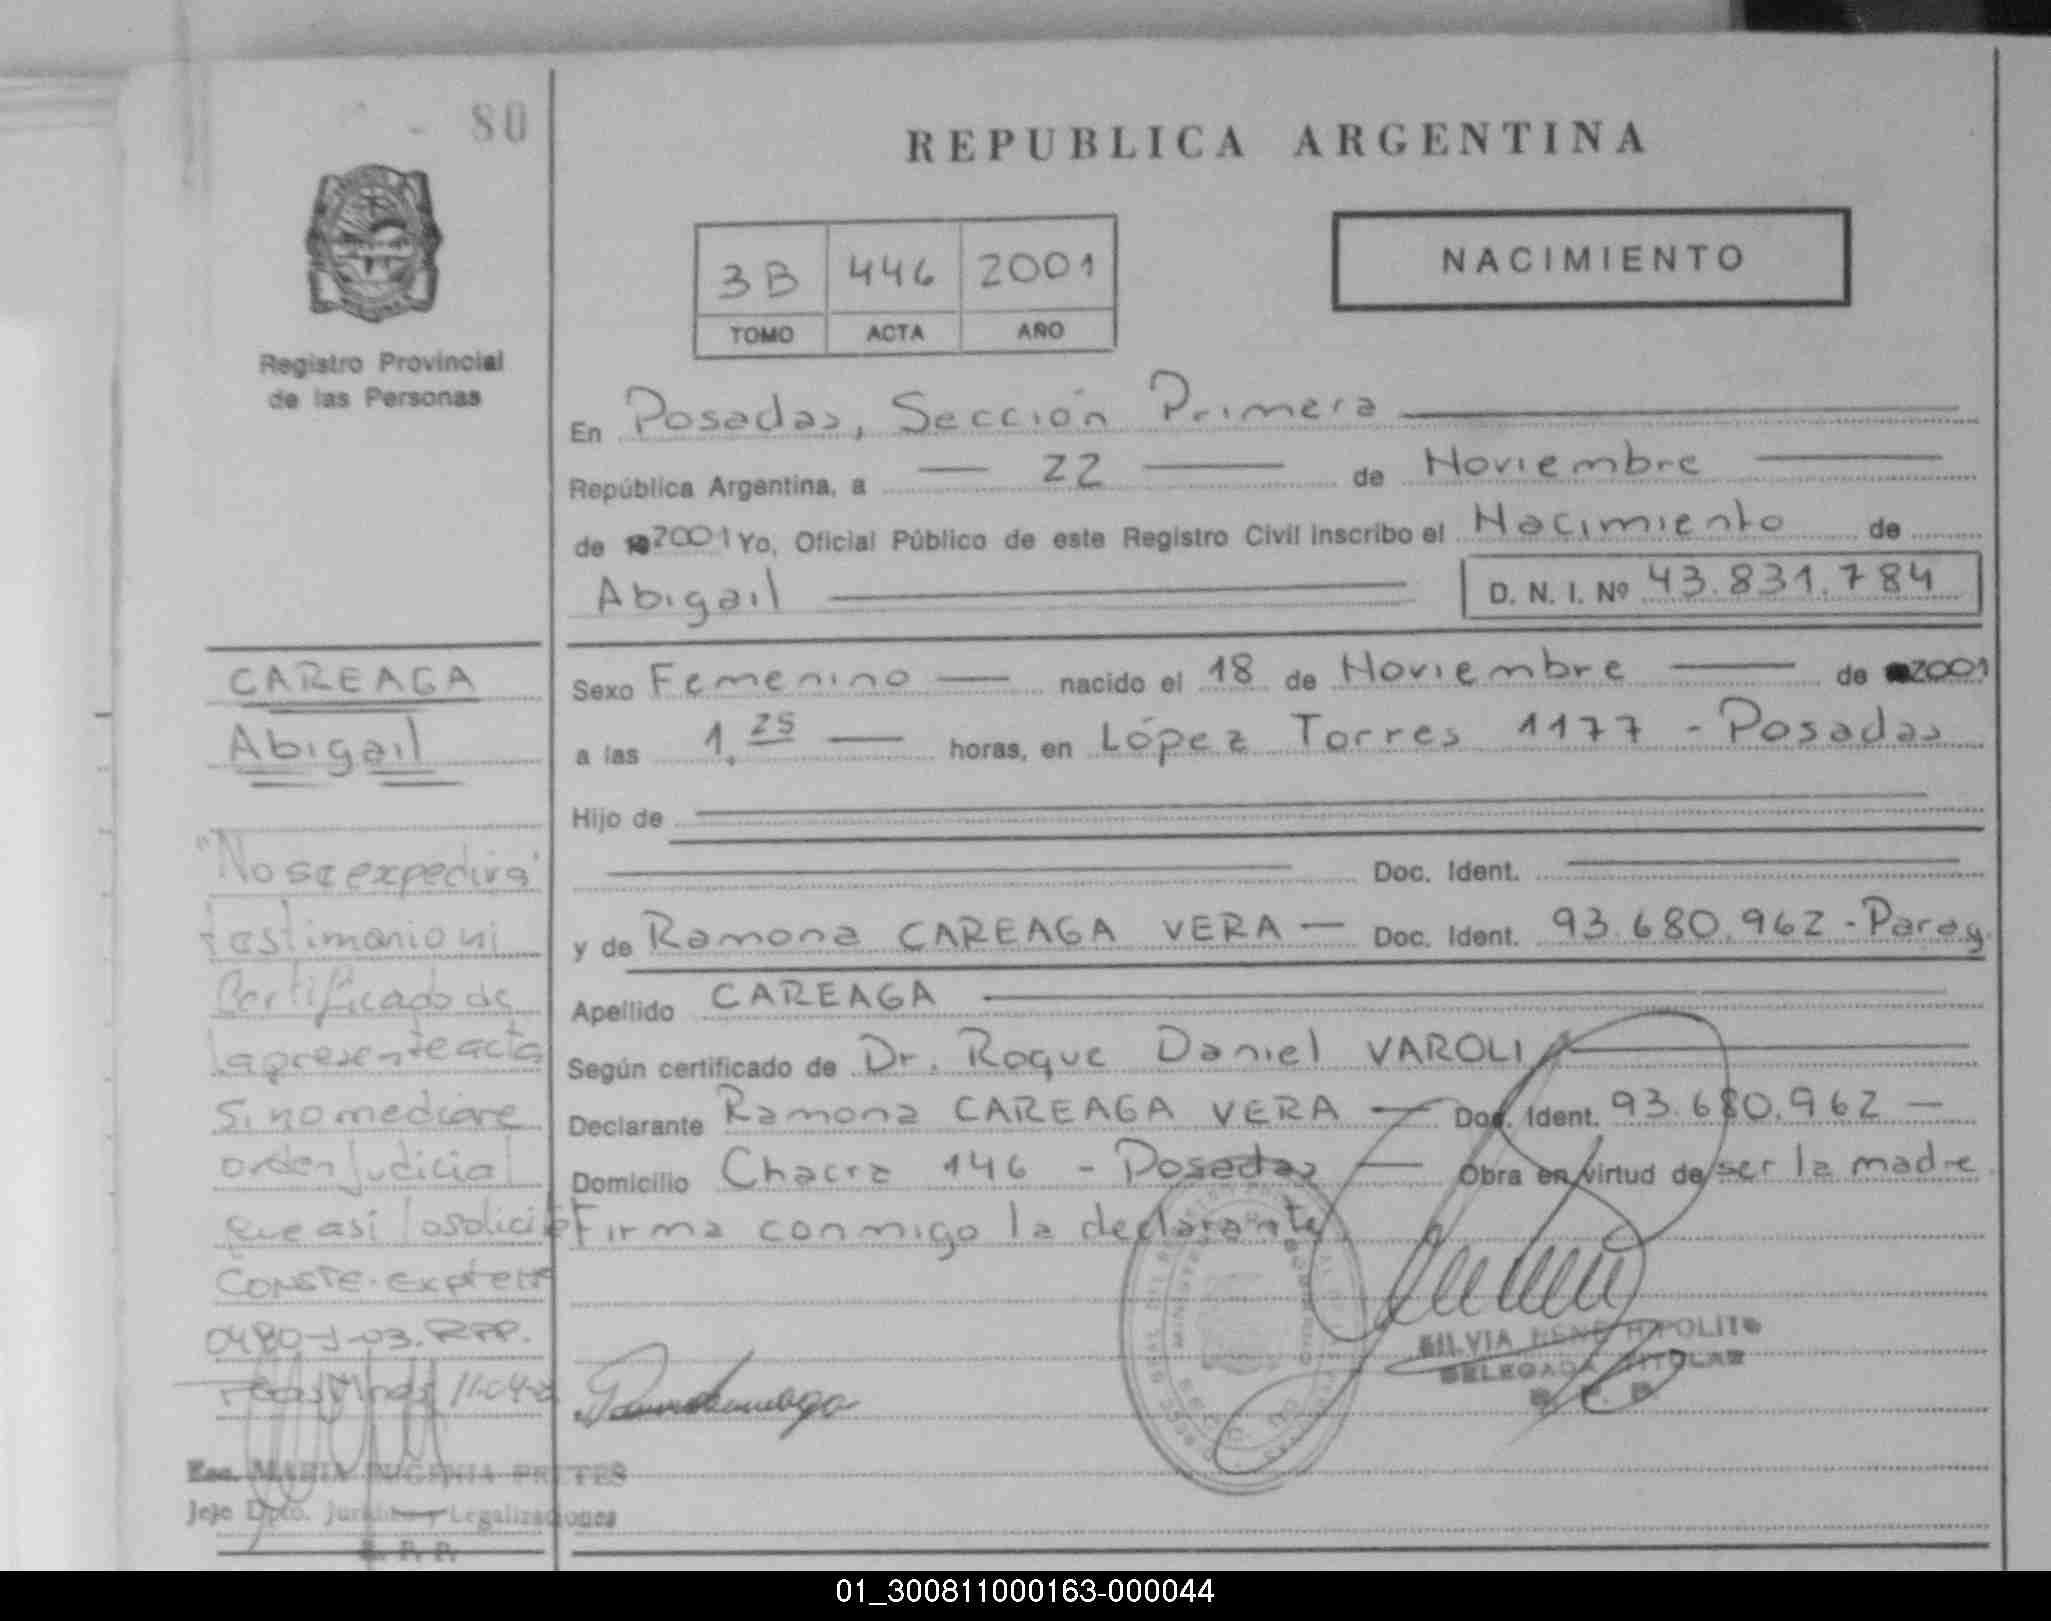 80
REPUBLICA ARGENTINA
NACIMIENTO
3B 446 2001
TOMO ACTA AÑO
Registro Provincial
de las Personas
En Posadas, Sección Primera
República Argentina, a 22 de Noviembre
de 2001 Yo, Oficial Público de este Registro Civil inscribo el Nacimiento de
Abigail D. N. I. Nº 43.831.784
CAREAGA
Abigail
Sexo Femenino nacido el 18 de Noviembre de 2001
a las 1.25 horas, en López Torres 1177 - Posadas
Hijo de
Doc. Ident.
y de Ramona CAREAGA VERA Doc. Ident. 93.680.962 - Parag.
Apellido CAREAGA
Según certificado de Dr. Roque Daniel VAROLI
Declarante Ramona CAREAGA VERA Doc. Ident. 93.680.962
Domicilio Chacra 146 - Posadas Obra en virtud de ser la madre
Firma conmigo la declarante
"No se expedirá
testimonio ni
Certificado de
la presente acta
si no mediare
orden judicial
que así lo solicite
CONSTE. Expte Nº
0480-J-03. RPP.
Pdas Mnes 11-04-
SILVIA RENE HIPOLITO
DELEGADA TITULAR
R. P. P.
Esc. MARIA EUGENIA PRETES
Jefe Dpto. Jurídico y Legalizaciones
R. P. P.
01_300811000163-000044